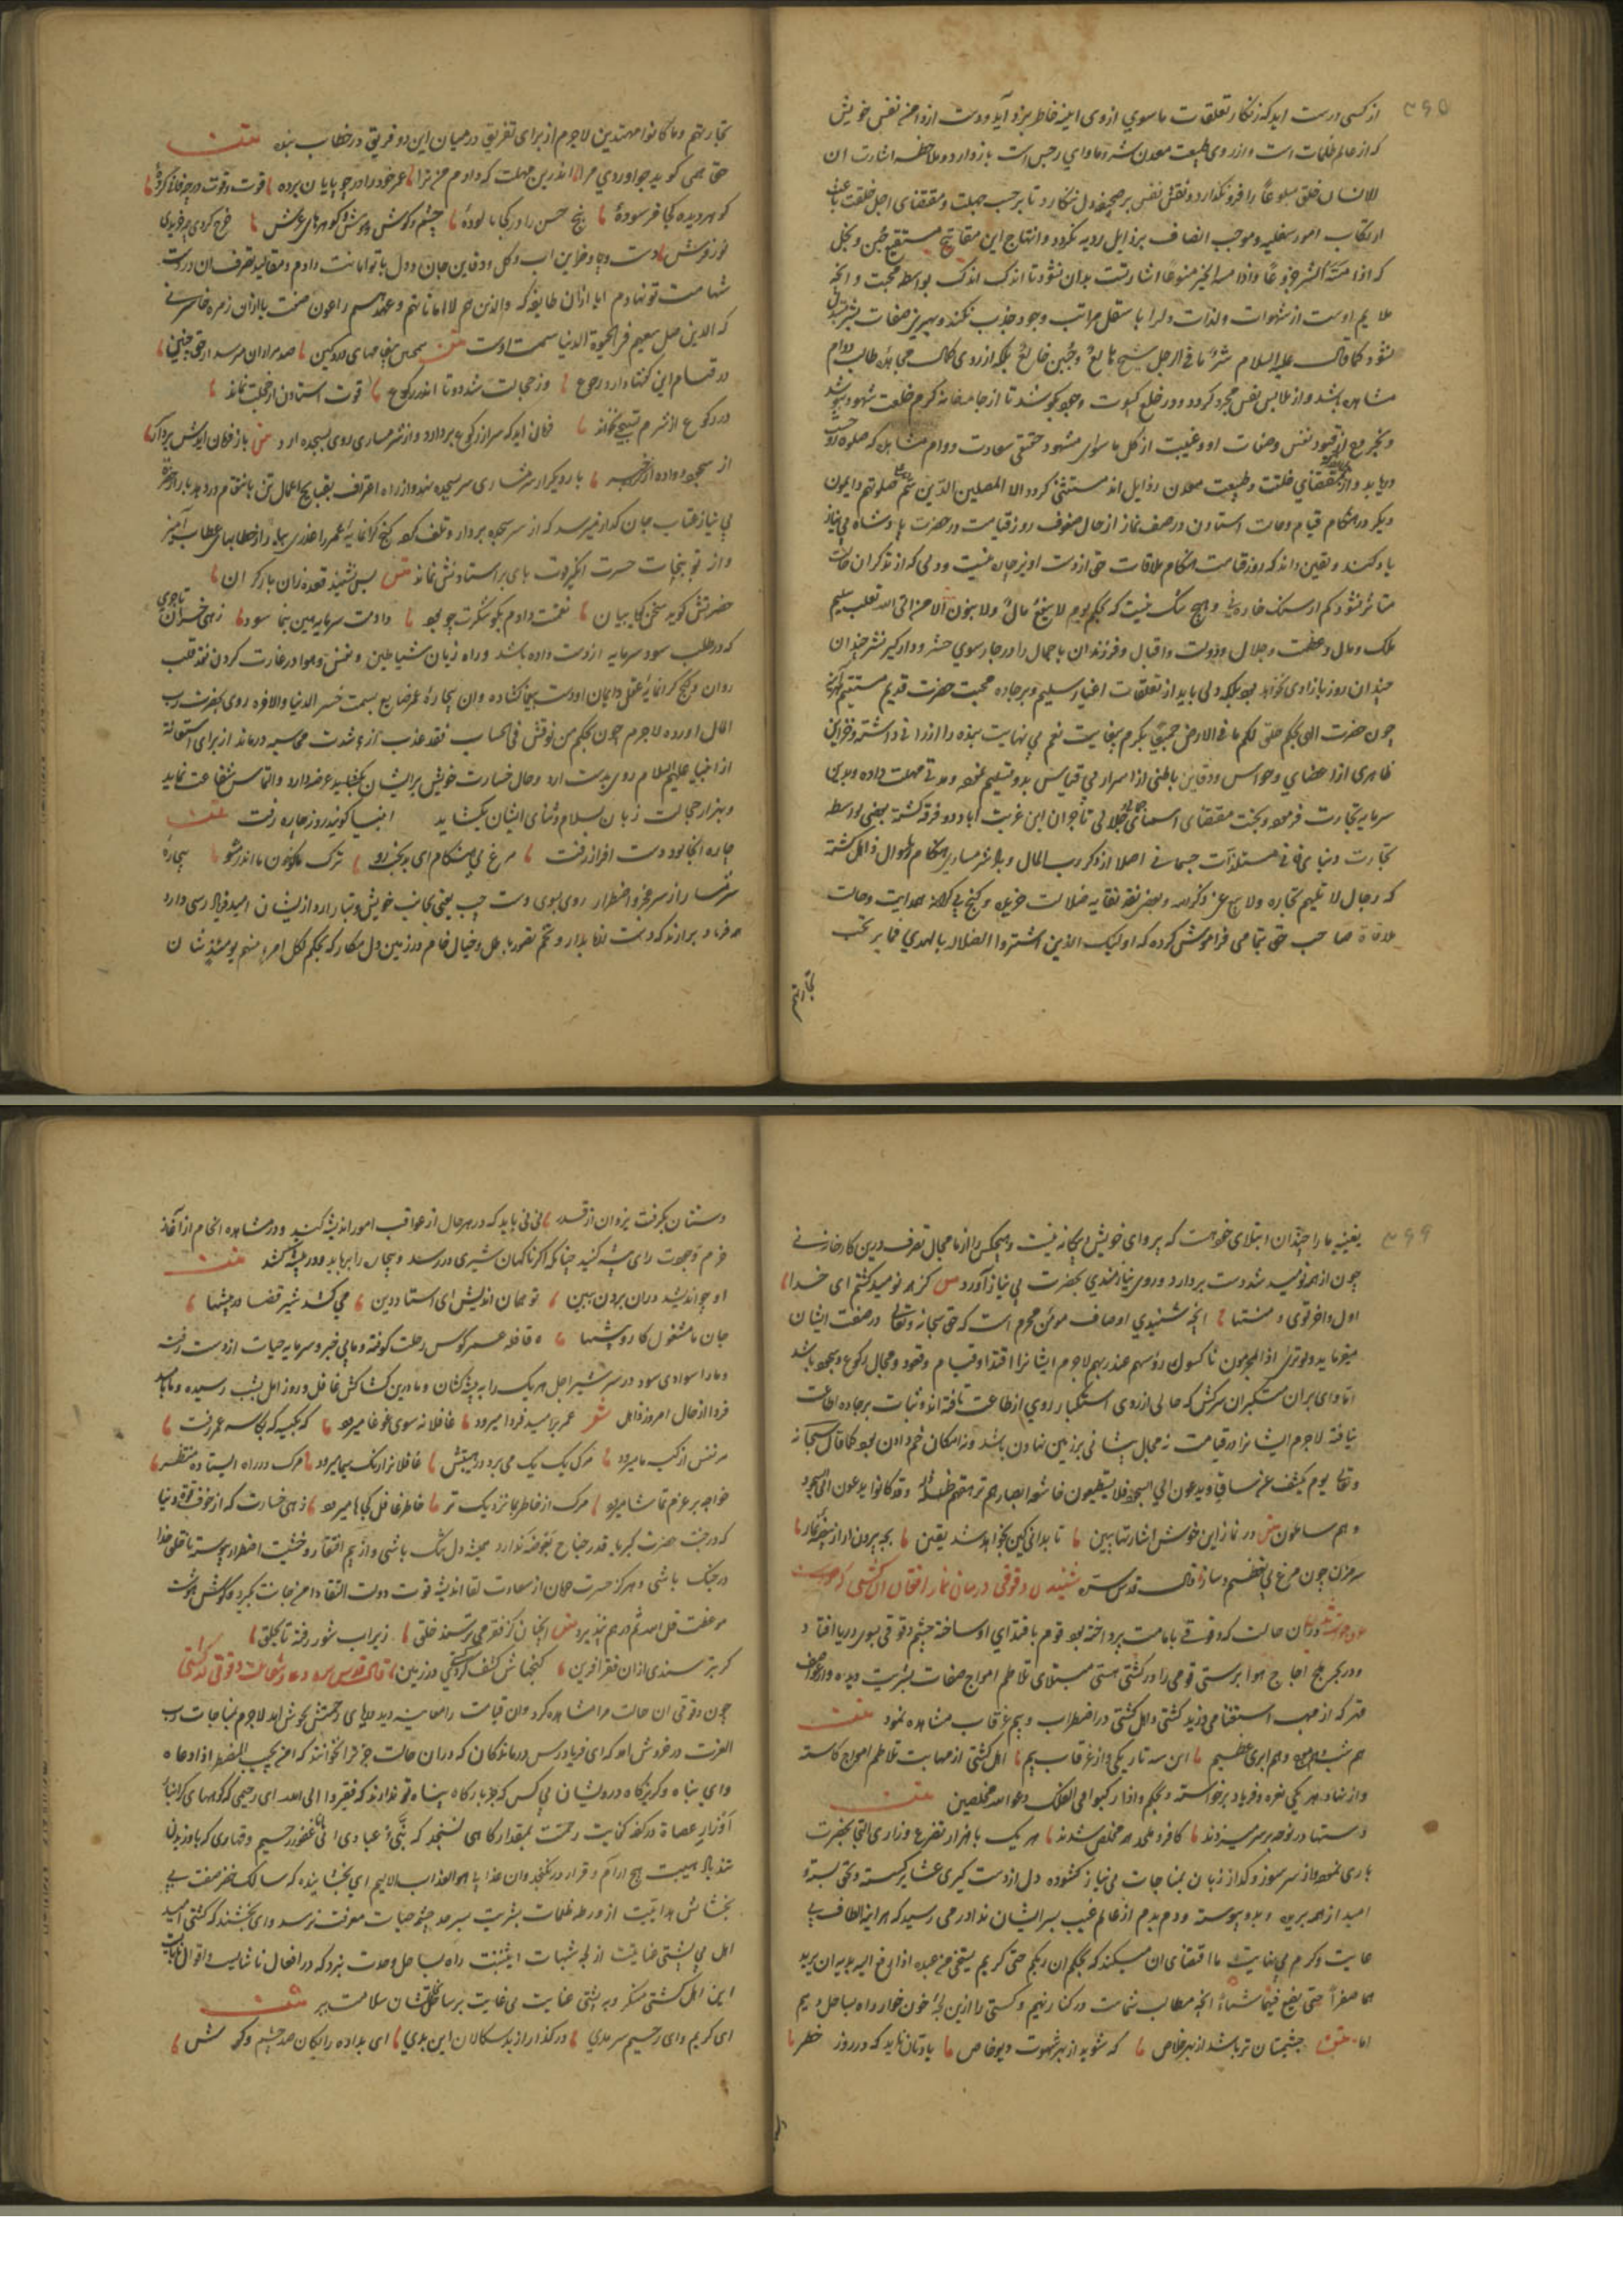 ۳۶۵
از کسی درست اید که زنکار تعلقات ماسوی از وی اینه خاطر بزدآید و دست از دامن نفس خویش
که از عالم ظلمات است و از روی طبیعت معدن شر و ماوای رجس است باز دارد و ملاحظه اشارت ان
الانسان خلق هلوعاً را فرو نکذارد و نقش نفس بر صحیفه دل ننکارد تا بر حسب جبلت و مقتضای اصل خلقت باعث
ارتکاب امور سفلیه و موجب اتصاف برذایل ردیه نکردد و انتاج این
که اذا مسّه الشر جزوعاً و اذا مسه الخیر منوعاً اشارتست بدان نشود تا اندک اندک بواسطه محبت و انچه
ملایم اوست از شهوات و لذات دلرا باسفل مراتب وجود جذب نکند و
نشود کما قال علیه السلام شرّ ما فی الرجل شح هالع و جبن خالع بلکه از روی کمال مجاهده طالب دوام
مشاهده باشد و از ملابس نفس مجرد کردد و در خلع کسوت وجود کوشد تا از جامه خانه کرم خلعت شهود پوشد
و غیبت از کل ماسوای مشهود حقیقی سعادت دوام مشاهده که صلوة
دریابد و از مقتضای خلقت و طبیعت معدن رذایل اند مستثنی کردد الا المصلین الذین هم علی صلوتهم دایمون
دیکر در هنکام قیام و حالت استادن در صف نماز از حال صفوف روز قیامت در حضرت پادشاه بی نیاز
یاد کند و یقین داند که روز قیامت هنکام ملاقات حق از دست اویز چاره نیست و دلی که از تذکر ان حالت
متاثر نشود کم از سنک خاره نی و هیچ شک نیست که بحکم یوم لا ینفع مال و لا بنون الا من اتی الله بقلب سلیم
ملک و مال و عظمت و جلال و دولت و اقبال و فرزندان با جمال را در چارسوی حشر و دار کیر نشر چندان
چندان روز بازاری نخواهد بود بلکه دلی باید از تعلقات اغیار سلیم و بر جاده محبت حضرت قدیم مستقیم
چون حضرت الهی بحکم خلق لکم ما فی الارض جمیعاً بکرم بی غایت نعم بی نهایت بنده را ارزانی داشته و خزاین
ظاهری از اعضای و حواس و دفاین باطنی از اسرار بی قیاس بدو تسلیم نموده و مدتی مهلت داده و بدین
سرمایه تجارت فرموده و بحسب مقتضای اسمای جلالی تاجران این غربت اباد دو فرقه کشته بعضی بواسطه
تجارت دنیای فانی و مستلذات جسمانی اصلا از ذکر رب المال و
که رجال لا تلهیهم تجارة و لا بیع عن ذکر الله و بعضی نقد
ملاقات صاحب حق بتمامی فراموش کرده که اولیک الذین اشتروا الضلالة بالهدی فما ربحت
تجارتهم
تجارتهم و ما کانوا مهتدین لاجرم از برای تفریق در میان این دو فریق در خطاب بنده متن
حق همی کوید چه اوردی مرا اندرین مهلت که دادم من ترا عمر خود را در چه پایان برده قوت و قوت در چه فانی کردهٔ
کوهر دیده کجا فرسودهٔ پنج حس را در کجا پالودهٔ چشم و کوش و هوش و کوهرهای عرش خرج کردی چه خریدی
تو ز فرش دست و پا و خزاین اب و کل و دفاین جان و دل با تو امانت دادم و مقالید تصرف ان در دست
شهامت تو نهادم ایا از ان طایفه که والذین هم لاماناتهم و عهدهم راعون صفت یا از ان زمره خاسر
که الذین ضل سعیهم فی الحیوة الدنیا سمت اوست متن همچنین پیغامهای دردکین صد هزاران مرسد از حق چنین
در قیام این کفتها دارد رجوع وز خجالت شد دوتا اندر رکوع قوت استادن از خجلت نماند
در رکوع از شرم تسبیحی بخواند فرمان اید که سر از رکوع بردار و از شرمساری روی بسجده ارد متن باز فرمان ایدش بردار
از سجده واده از خبر بار دیکر از شرمساری سر بسجده نهد و از راه اعتراف بقبایح اعمال
بی نیاز عتاب جان کداز میرسد که از سر سجده بردار و تلف کرده کنج کرانمایهٔ عمر را
و از توبیخات حسرت انکیز قوت پای بر استادنش نماند متن پس نشیند قعده زان بار کران
حضرتش کوید سخن کو با بیان نعمتت دادم بکو شکرت چه بود دادمت سرمایه هین بنما سود زهی خسران تاجری
که در طلب سود سرمایه از دست داده باشد و راه زیان شیاطین و نفس و هوا در غارت کردن نقد قلب
روان و کنج کرانمایهٔ عقل و ایمان او دست یغما کشاده و ان بیچارهٔ عمر ضایع بسمت خسر الدنیا و الاخره روی بحضرت رب
المال اورده لاجرم چون بحکم من نوقش فی الحساب فقد عذب از شدت محاسبه درماند از برای استعانه
از انبیا علیهم السلام روی بدست راست ارد و حال خسارت خویش بر ایشان عرضه دارد و التماس شفاعت نماید
و بهزار خجالت زبان بسلام و ثنای ایشان بکشاید انبیا کویند روز چاره رفت متن
چاره انجا بود و دست افزار زفت مرغ بی هنکامی ای بدبخت رو ترک ما کو خون ما اندر مشو بیچارهٔ
شرمسار از سر عجز و اضطرار روی بسوی دست چپ یعنی بجانب خویش و تبار ارد و از ایشان امید فریادرسی دارد
همه فریاد برارند که دست از ما بدار و تخم تصور باطل و خیال خام در زمین دل مکار که بحکم لکل امرء منهم یومئذ شان
۳۶۶
یغنیه ما را چندان ابتلای خود هست که پروای خویش و بیکانه نیست و هیچکس را از ما مجال تصرف درین کارخانه نی
چون از همه نومید شد دست بردارد و روی نیازمندی بحضرت بی نیاز آورد متن کز همه نومید کشتم ای خدا
اول و اخر توی و منتها انچه شنیدی اوصاف مومن مجرم است که حق سبحانه و تعالی در صفت ایشان
میفرماید و لو تری اذ المجرمون ناکسوا رؤسهم عند ربهم لاجرم ایشانرا اقتدا و قیام و قعود و مجال رکوع و سجود باشد
اما وای بران متکبران سرکش که حالی از روی استکبار روی از طاعت تافته اند و ثبات بر جاده اطاعت
نیافته لاجرم ایشانرا در قیامت نه مجال پیشانی بر زمین نهادن باشد و نه امکان خم دادن بود کما قال سبحانه
و تعالی یوم یکشف عن ساق و یدعون الی السجود فلا یستطیعون خاشعة ابصارهم ترهقهم ذلة و قد کانوا یدعون الی السجود
و هم سالمون متن در نماز این خوش اشارتها ببین تا بدانی کین بخواهد شد یقین بچه بیرون ار از بیضه نماز
سر مزن چون مرغ بی تعظیم و ساز قال قدس سره شنیدن دقوقی در میان نماز افغان ان کشتی که غرق
خواست شدن دران حالت که دقوقی بامامت پرداخته بود قوم باقتدای او ساخته چشم دقوقی بسوی دریا افتاد و
در بحر ملح اجاج هوا پرستی قومی را در کشتی هستی مبتلای تلاطم امواج صفات بشریت دیده و از عواصف
قهر که از مهب استغنا می وزید کشتی و اهل کشتی در اضطراب و بیم غرقاب مشاهده نمود متن
هم شب و هم ابری عظیم این سه تاریکی و از غرقاب بیم اهل کشتی از مهابت تلاطم امواج کاسته
و از نهاد هر یکی نعره و فریاد برخواسته و بحکم و اذا رکبوا فی الفلک دعوا الله مخلصین متن
دستها در نوحه بر سر میزدند کافر و ملحد همه مخلص شدند هر یک با هزار تضرع و زاری التجا بحضرت
باری نموده و از سر سوز و کداز زبان بمناجات بی نیاز کشوده دل از دستکیری عشایر کسسته و
امید از همه بریده و بدو پیوسته و دم بدم از عالم غیب بسر ایشان ندا در می رسید که هراینه الطاف بی
غایت و کرم بی نهایت ما اقتضای ان میکند که بحکم ان ربکم حی کریم یستحی من عبده اذا رفع الیه یدیه ان یردهما
صفراً حتی یضع فیهما شیئاً انچه مطالب شماست در کنار نهیم و کشتی را ازین لجهٔ خون خوار راه بساحل دهیم
اما متن چشمتان تر باشد از بهر خلاص که شوید از بهر شهوت دیو خاص یادتان ناید که در روز خطر
دستتان بکرفت یزدان از قدر نی نی باید که در هر حال از عواقب امور اندیشه کنید و در مشاهده انجام از آغاز
حزم و جودت رای پیشه کنید چنانکه اکر ناکهان شیری در رسد و یکی را برباید و در بیشه کشد متن
او چه اندیشد دران بردن ببین تو همان اندیش ای استاد دین می کشد شیر قضا در بیشها
جان ما مشغول کار و پیشها قافله عمر کوس رحلت کوفته و ما بی خبر و سرمایه حیات از دست رفته
و ما را سودای سود در سر شیر اجل هر یک را به بیشه کشان و ما درین کشاکش غافل و روز امل بشب رسیده و ما بامید
فردا از حال امروز ذاهل شعر عمر بر امید فردا میرود غافلانه سوی غوغا میرود که بکیسه که بکاسه عمر رفت
هر نفس از کیسه ما میرود مرک یک یک می برد در هیبتش غافلانرا رنک سیما میرود مرک در راه ایستاده منتظر
خواجه بر عزم تماشا میرود مرک از خاطر بما نزدیک تر خاطر غافل کجاها میرود زهی خسارت که از خوف فوت دنیا
که در جنب حضرت کبریا قدر جناح بعوضه ندارد همیشه دل تنک باشی و از بیم افتقار و خشیت اضطرار پیوسته با خلق خدا
در جنک باشی و هرکز حسرت حرمان از سعادت لقا اندیشه فوت دولت التقا دامن جانت نکیرد و کوش هوشت
موعظت قل الله ثم ذرهم نپذیرد متن انچنان کز فقر می ترسند خلق زیر اب شور رفته تا بحلق
کر بترسندی ازان فقر افرین کنجهاشان کشف کشتی در زمین قال قدس سره دعا و شفاعت دقوقی در کشتی
چون دقوقی ان حالت را مشاهده کرد و ان قیامت را معاینه دید دریای رحمتش بجوش امد لاجرم بمناجات رب
العزت در خروش امد که ای فریادرس درماندکان که دران حالت جز ترا نخوانند که امن یجیب المضطر اذا دعاه
و ای پناه و کریزکاه درویشان بی کس که جز بارکاه پناه تو ندارند که ففروا الی الله ای رحیمی که کوههای کران
اوزار عصاة در کفهٔ کفایت رحمتت بمقدار کاهی نسنجد که نبئ عبادی انی انا الغفور الرحیم و قهاری که با وزیدن
تندباد هیبتت هیچ ارام و قرار درنکنجد و ان عذابی هو العذاب الالیم ای بخشاینده که سالک خضر صفت بی
بخشایش هدایتت از ورطه ظلمات بشریت بسرحد چشمه حیات معرفت نرسد و ای بخشنده که کشتی امید
اهل بی پشتی عنایتت از لجه شبهات اثنینیت راه بساحل وحدت نبرد که در افعال ناشایسته و اقوال نابایست
این اهل کشتی منکر و به پشتی عنایت بی غایت بر ساحل سلامت بر متن
ای کریم و ای رحیم سرمدی در کذار از بدسکالان این بدی ای بداده رایکان صد چشم و کوش